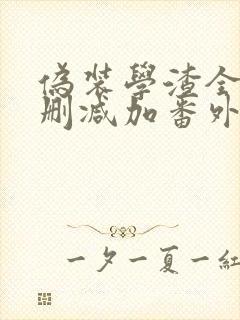 偽装學渣全
刪減加番外
一夕一夏一紅